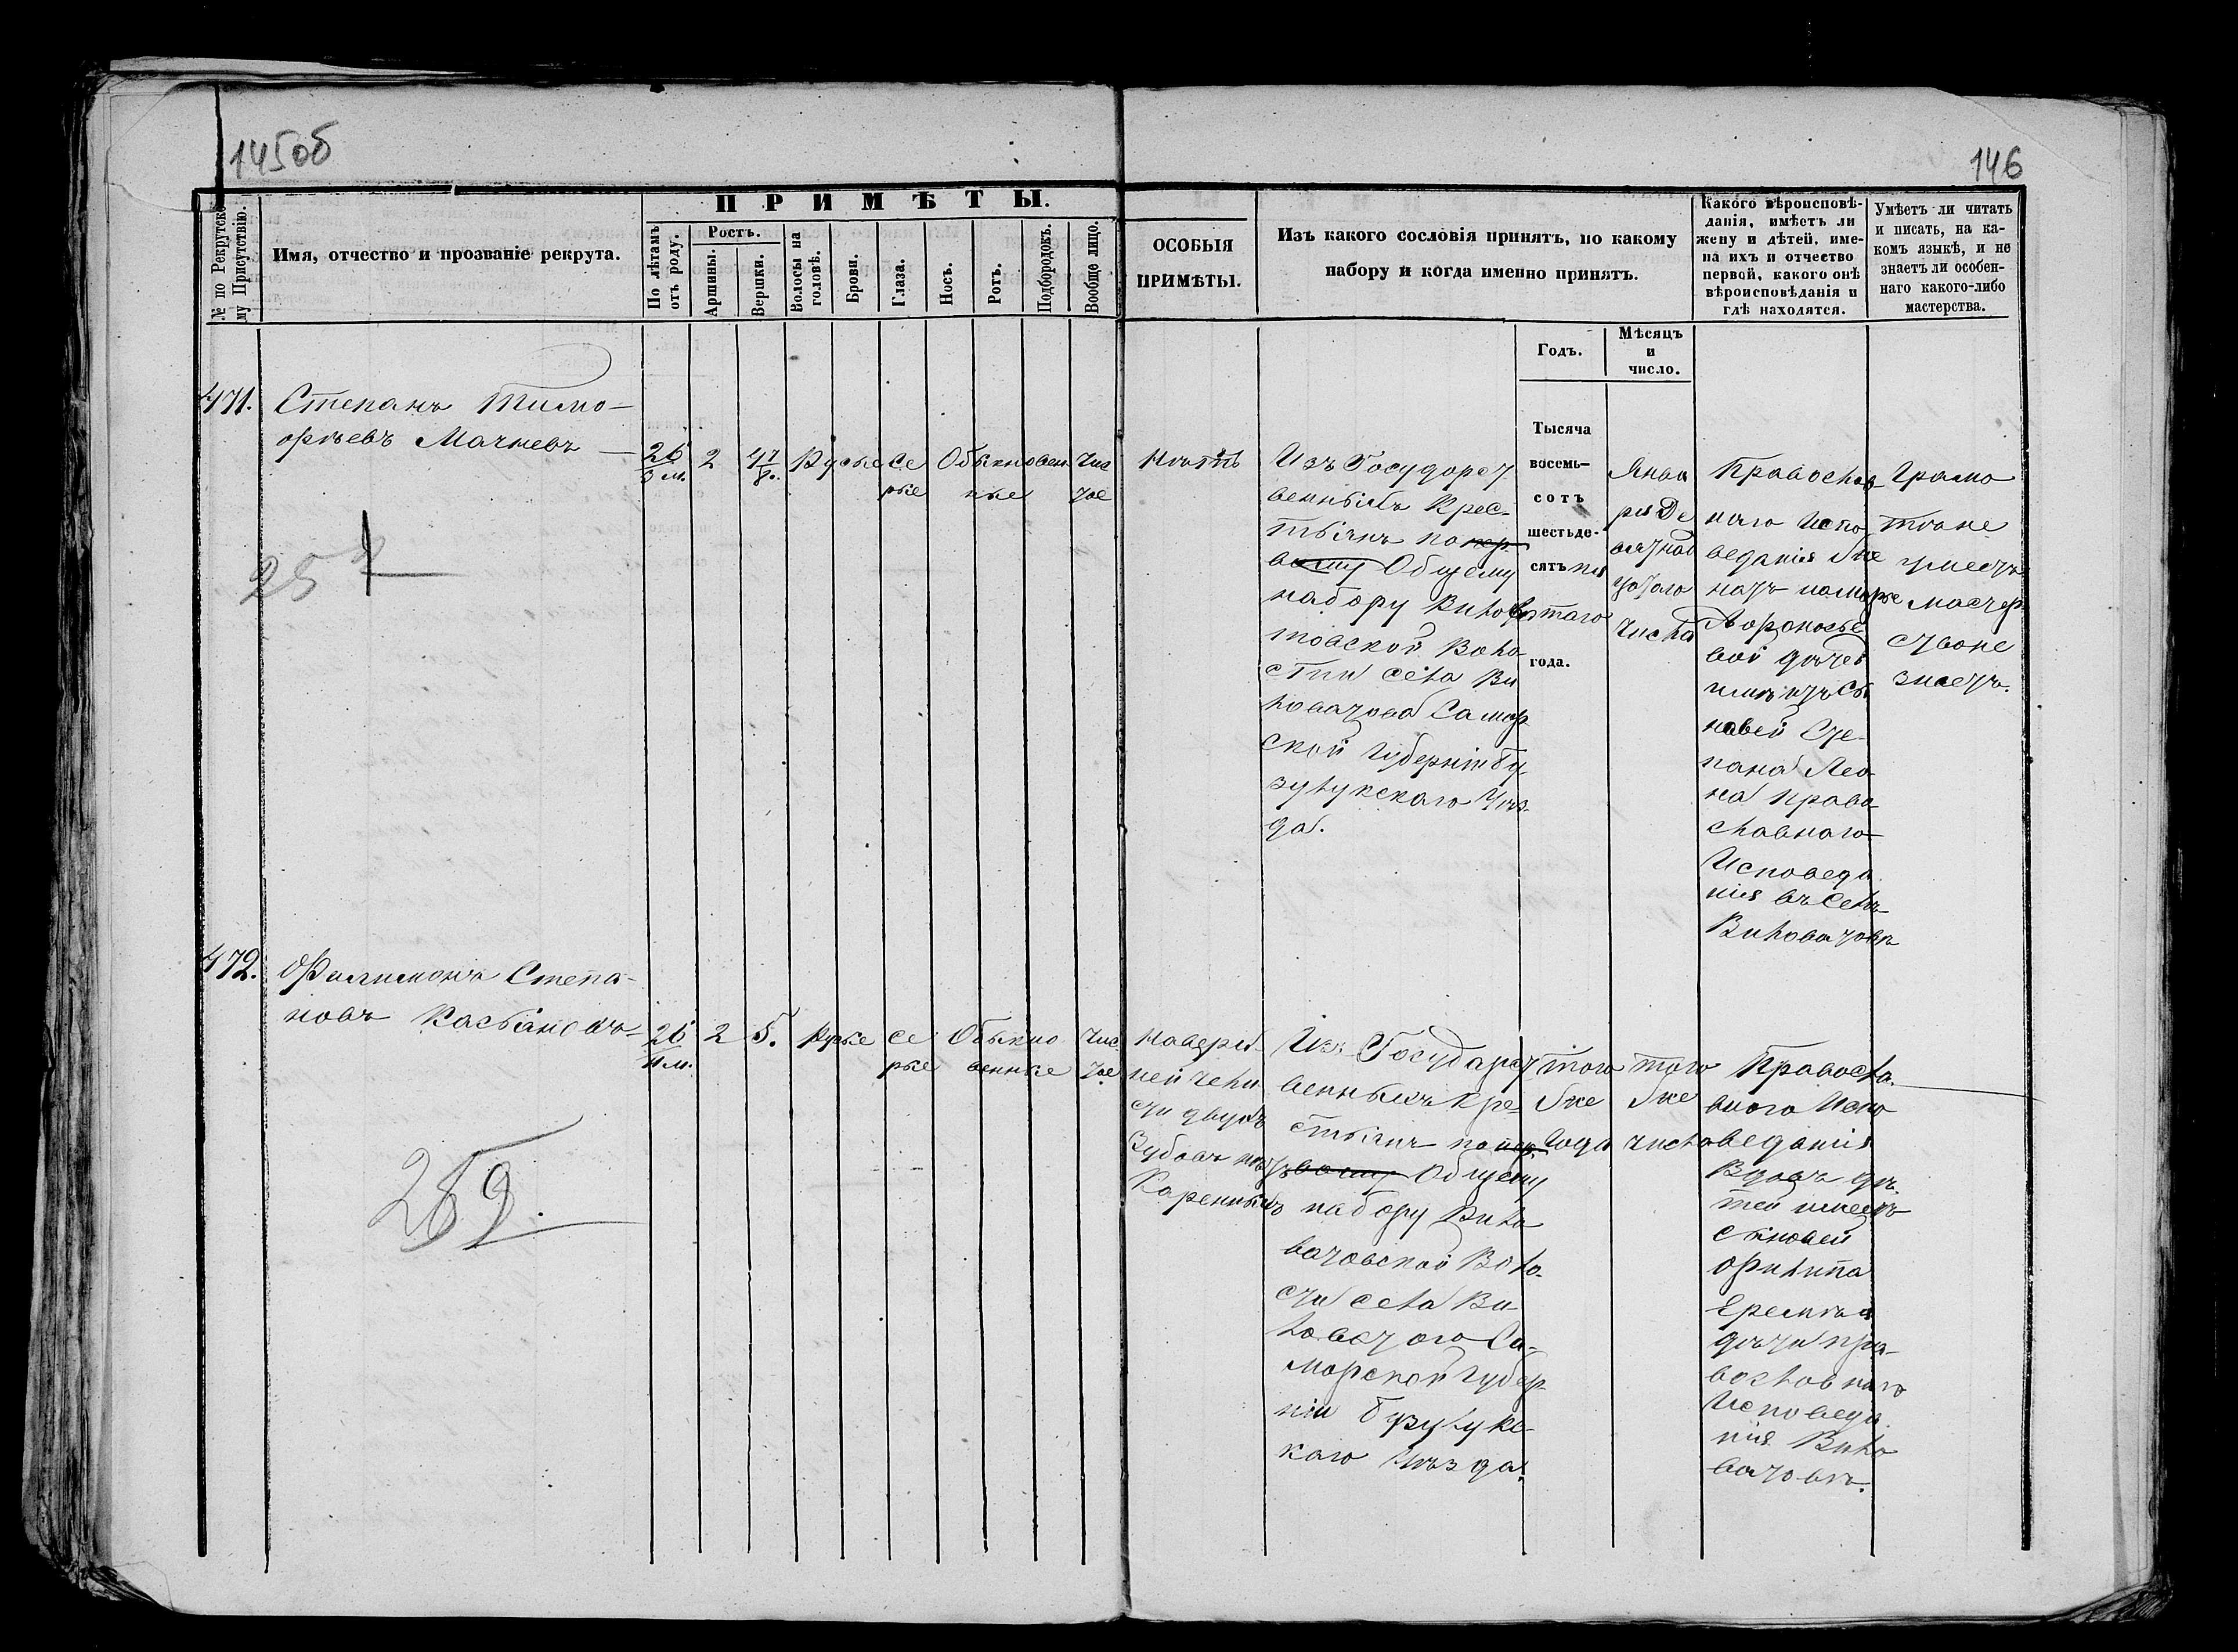 145об
146
№ по Рекрутско-
му Присутствію.
Имя, отчество и прозваніе рекрута.
ПРИМѢТЫ.
По лѣтамъ
отъ роду.
Ростъ.
Аршины.
Вершки.
Волосы на
головѣ.
Брови.
Глаза.
Носъ.
Ротъ.
Подбородокъ.
Вообще лицо.
ОСОБЫЯ
ПРИМѢТЫ.
Изъ какого сословія принятъ, по какому
набору и когда именно принятъ.
Какого вѣроисповѣ-
данія, имѣетъ ли
жену и дѣтей, име-
на ихъ и отчество
первой, какого онѣ
вѣроисповѣданія и
гдѣ находятся.
Умѣетъ ли читать
и писать, на ка-
комъ языкѣ, и не
знаетъ ли особен-
наго какого-либо
мастерства.
Годъ.
Мѣсяцъ
и
число.
471.
Степанъ Тимо-
ѳѣевъ Мачневъ
26
3 м.
2
4 1/8.
Русые
Се
рые
Обыкновен
ные
Чис
тое
Нѣтъ
Изъ Государст
венныхъ Крес-
тьянъ по пер
вому Общему
набору Вилова
товской Воло
сти села Ви
ловатова Самар
ской Губерніи Бу
зулукскаго Уѣз-
да.
Тысяча
восемь-
сотъ
шестьде-
сятъ пя
таго
года.
Янва
ря Де
вятнад
цатаго
числа
Православ
наго Испо
веданія
Степана
Прова-
славнаго
Исповеда
нія въ Селѣ
Виловатовѣ
Грамо
тѣ не
умеетъ
мастер
ства не
знаетъ.
25
472.
Филимонъ Степа-
новъ Касьяновъ
26
11 м.
2
5.
Русые
Се
рые
Обыкно
венные
Чис
тое
На верх-
ней челю
сти двухъ
Зубовъ нѣтъ
Коренныхъ
Изъ Государст
венныхъ Кре-
стьянъ по пер
вому Общему
набору Вило
ватовской Воло-
сти села Ви-
ловатого Са-
марской Губер-
ніи Бузулукс-
каго Уѣзда.
того
же
года
того
же
числа
Правосла
внаго Испо
веданія
Вдовъ дѣ
тей имеетъ
сыновей
Филипа
Еремѣя
дѣти пра-
вославнаго
Исповеда
нія Вило
ватовѣ.
259.